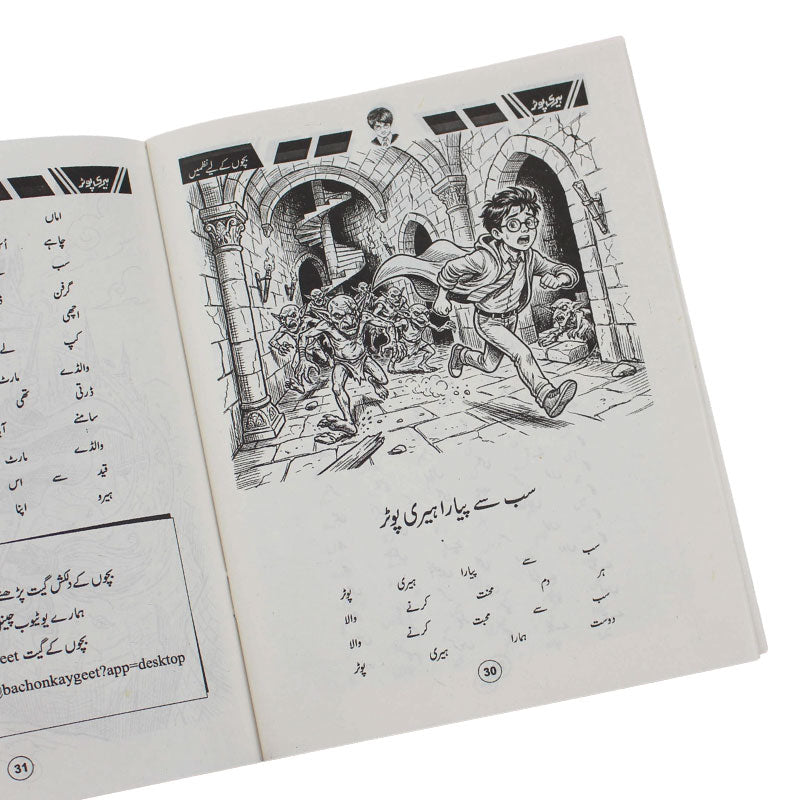 بچوں کے لیے نظمیں
ہیری پوٹر
سب سے پیارا ہیری پوٹر
سب سے پیارا ہیری پوٹر
ہر دم محنت کرنے والا
سب سے محبت کرنے والا
دوست ہمارا ہیری پوٹر
30
ہیری پوٹر
اماں
چاہے
سب
گرفن
اچھی
کپ لے
والڈے مارٹ
ڈرتی تھی
سامنے
والڈے مارٹ
قید سے اس
ہیرو اپنا
بچوں کے دلکش گیت پڑھنے
ہمارے یوٹیوب چینل
بچوں کے گیت eet
@bachonkaygeet?app=desktop
31